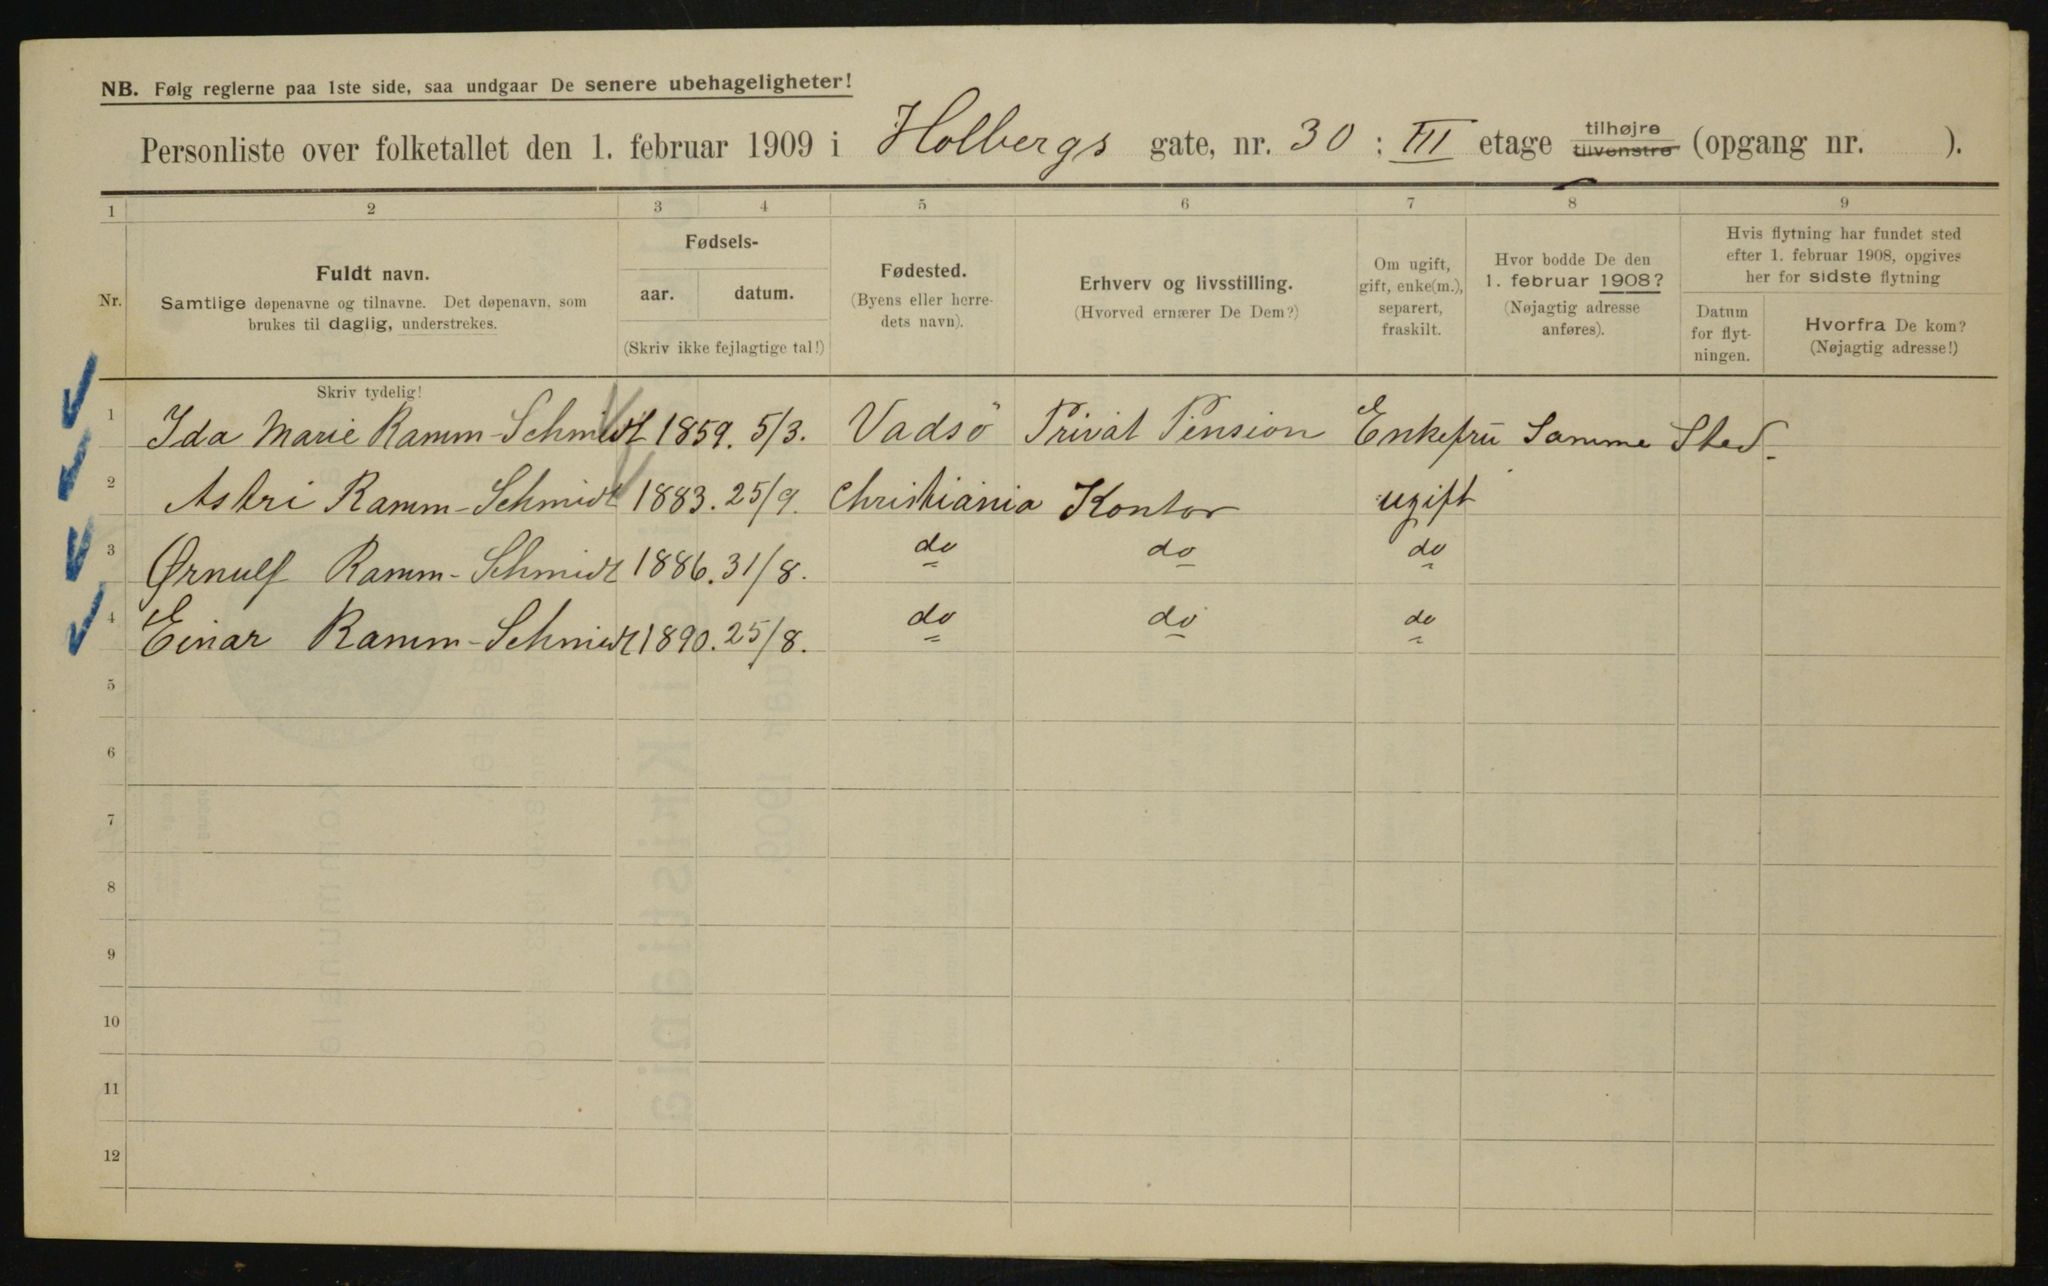 NB. Følg reglerne paa 1ste side, saa undgaar De senere ubehageligheter!
Personliste over folketallet den 1. februar 1909 i Holbergs gate, nr. 30 : III etage tilhøjre tilvenstre (opgang nr. ).
1 2 3 4 5 6 7 8 9
Nr.
Fuldt navn.
Samtlige døpenavne og tilnavne. Det døpenavn, som
brukes til daglig, understrekes.
Fødsels-
aar. datum.
(Skriv ikke fejlagtige tal!)
Fødested.
(Byens eller herre-
dets navn).
Erhverv og livsstilling.
(Hvorved ernærer De Dem?)
Om ugift,
gift, enke(m.),
separert,
fraskilt.
Hvor bodde De den
1. februar 1908?
(Nøjagtig adresse
anføres).
Hvis flytning har fundet sted
efter 1. februar 1908, opgives
her for sidste flytning
Datum
for flyt-
ningen.
Hvorfra De kom?
(Nøjagtig adresse!)
Skriv tydelig!
1 Ida Marie Ramm-Schmidt 1859. 5/3. Vadsö Privat Pension Enkefru Samme Sted.
2 Astri Ramm-Schmidt 1883. 25/9. Christiania Kontor ugift
3 Ørnulf Ramm-Schmidt 1886. 31/8. do do do
4 Einar Ramm-Schmidt 1890. 25/8. do do do
5
6
7
8
9
10
11
12